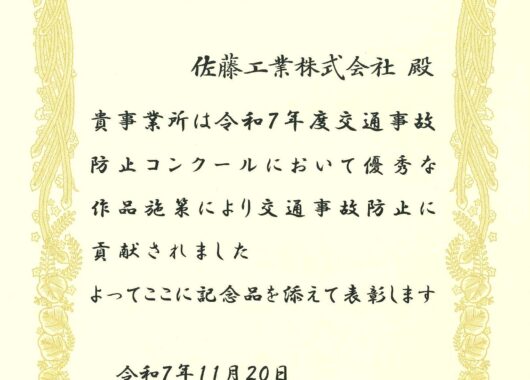 佐藤工業株式会社 殿
貴事業所は令和7年度交通事故
防止コンクールにおいて優秀な
作品施策により交通事故防止に
貢献されました
よってここに記念品を添えて表彰します
令和7年11月20日